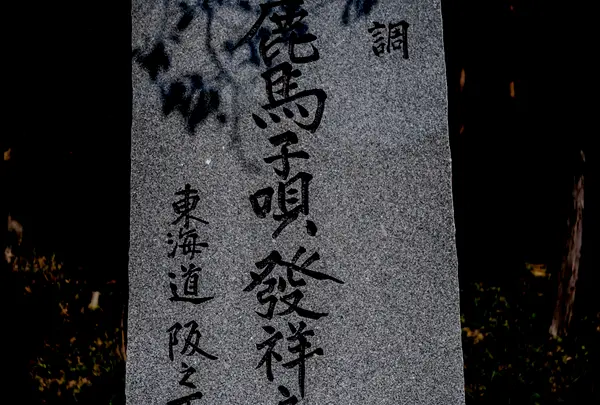 調
鹿馬子唄発祥之
東海道阪之下